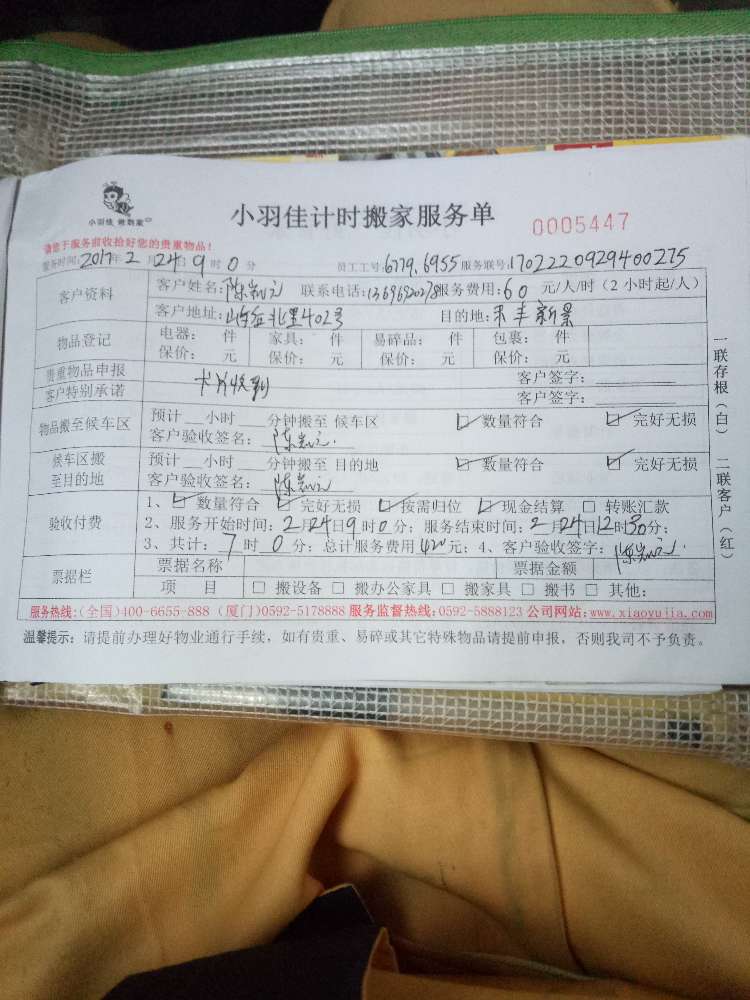 小羽佳 帮到家
小羽佳计时搬家服务单
0005447
请您于服务前收拾好您的贵重物品!
服务时间:2017年2月24日9时0分 员工工号:6779.6955 服务联号:1702220929400275
客户资料 客户姓名:陈 联系电话: 服务费用:60元/人/时(2小时起/人)
客户地址: 北里402号 目的地:禾丰新景
物品登记 电器: 件 家具: 件 易碎品: 件 包裹: 件
保价: 元 保价: 元 保价: 元 保价: 元
贵重物品申报 客户签字:
客户特别承诺 卡片收到 客户签字:
物品搬至候车区 预计 小时 分钟搬至 候车区 数量符合 完好无损
客户验收签名:陈
候车区搬至目的地 预计 小时 分钟搬至 目的地 数量符合 完好无损
客户验收签名:陈
验收付费 1、数量符合 完好无损 按需归位 现金结算 转账汇款
2、服务开始时间:2月24日9时0分;服务结束时间:2月24日12时30分;
3、共计:7时0分;总计服务费用420元;4、客户验收签字:陈
票据栏 票据名称 票据金额
项 目 搬设备 搬办公家具 搬家具 搬书 其他:
服务热线:(全国)400-6655-888 (厦门)0592-5178888 服务监督热线:0592-5888123 公司网站:www.xiaoyujia.com
温馨提示:请提前办理好物业通行手续,如有贵重、易碎或其它特殊物品请提前申报,否则我司不予负责。
一联存根(白) 二联客户(红)